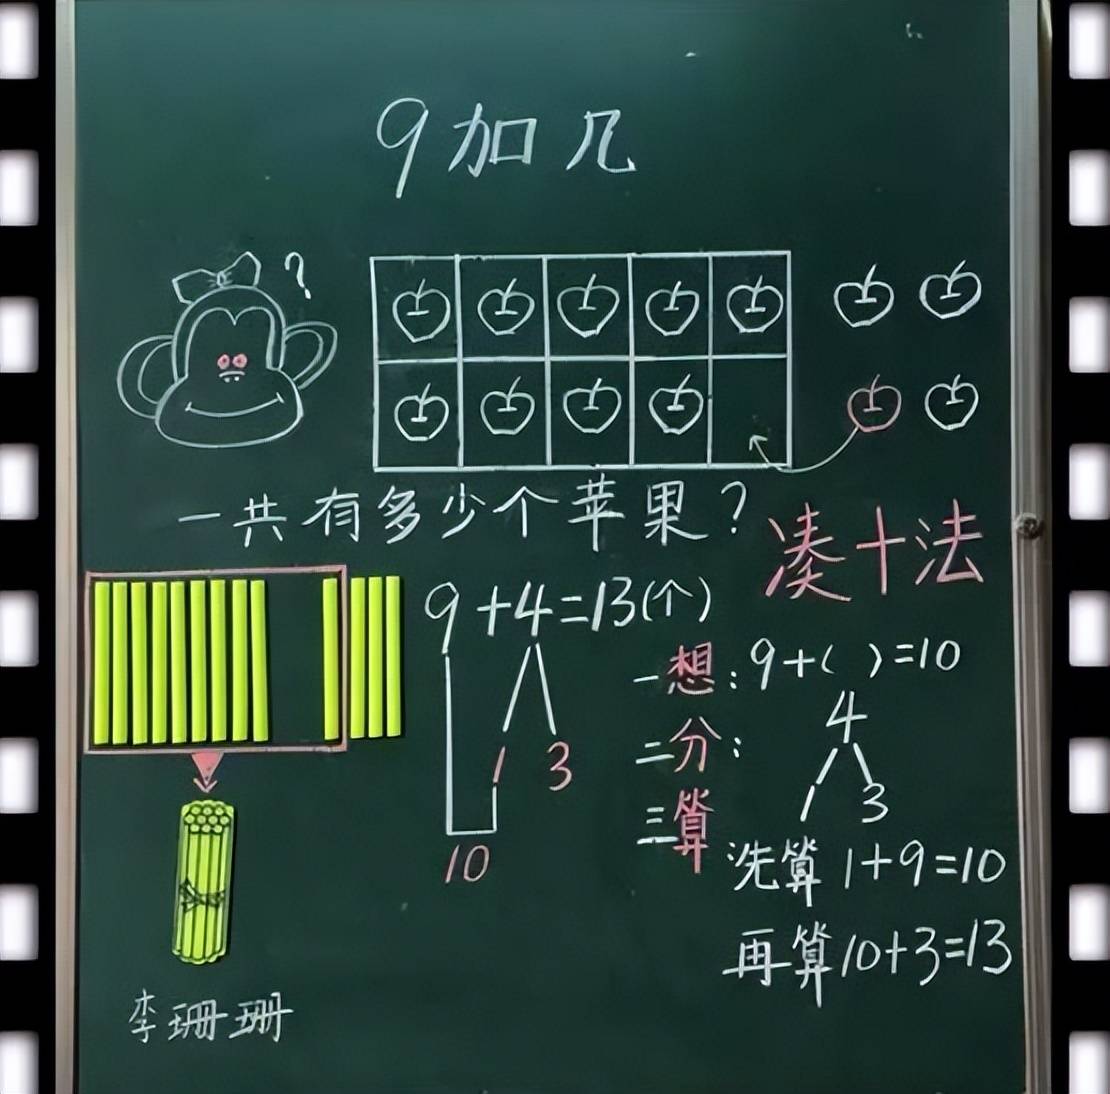 9加几
?
一共有多少个苹果?
凑十法
9+4=13(个)
1 3
10
一想:9+( )=10
二分:4
1 3
三算
洗算1+9=10
再算10+3=13
李珊珊